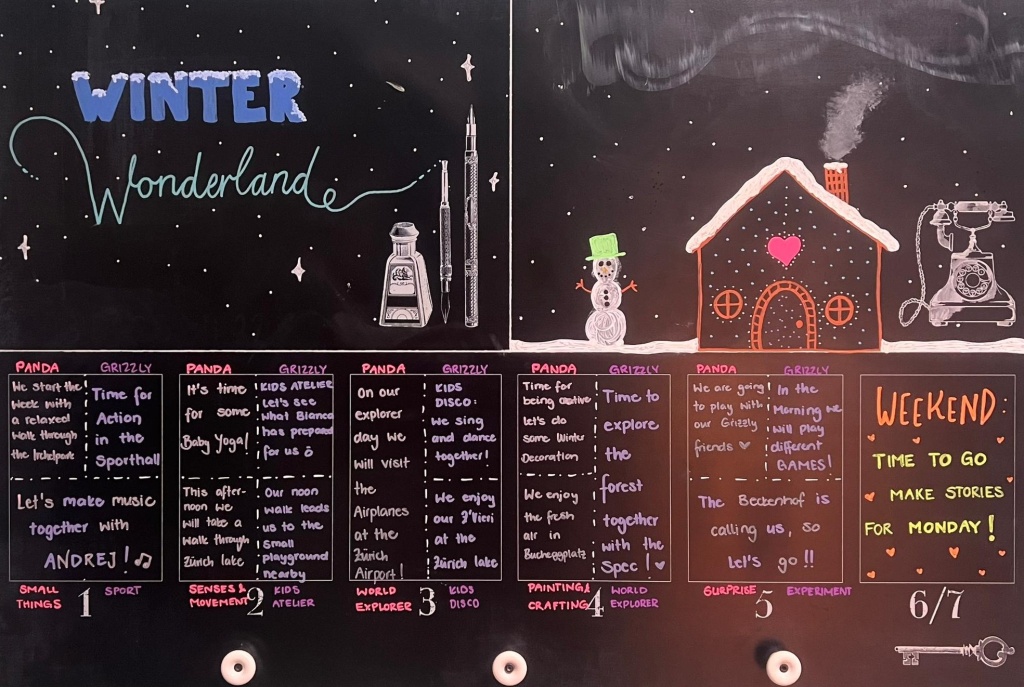 WINTER
Wonderland
PANDA GRIZZLY
We start the
week with
a relaxed
walk through
the
Time for
Action
in the
Sporthall
Let's make music
together with
ANDREJ!
SMALL
THINGS
1
SPORT
PANDA GRIZZLY
It's time
for some
Baby Yoga!
KIDS ATELIER
Let's see
what Blanca
has prepared
for us
This after-
noon we
will take a
walk through
Zürich lake
Our noon
walk leads
us to the
small
playground
nearby
SENSES &
MOVEMENT
2
KIDS
ATELIER
PANDA GRIZZLY
On our
explorer
day we
will visit
the
Airplanes
at the
Zürich
Airport!
KIDS
DISCO:
We sing
and dance
together!
We enjoy
our Z'Vieri
at the
Zürich lake
WORLD
EXPLORER
3
KIDS
DISCO
PANDA GRIZZLY
Time for
being creative
let's do
some Winter
Decoration
We enjoy
the fresh
air in
Bucheggplatz
Time to
explore
the
forest
together
with the
Spec!
PAINTING &
CRAFTING
4
WORLD
EXPLORER
PANDA GRIZZLY
We are going
to play with
our Grizzly
friends
In the
Morning we
will play
different
GAMES!
The Beckenhof is
calling us, so
let's go!!
SURPRISE
5
EXPERIMENT
WEEKEND:
TIME TO GO
MAKE STORIES
FOR MONDAY!
6/7